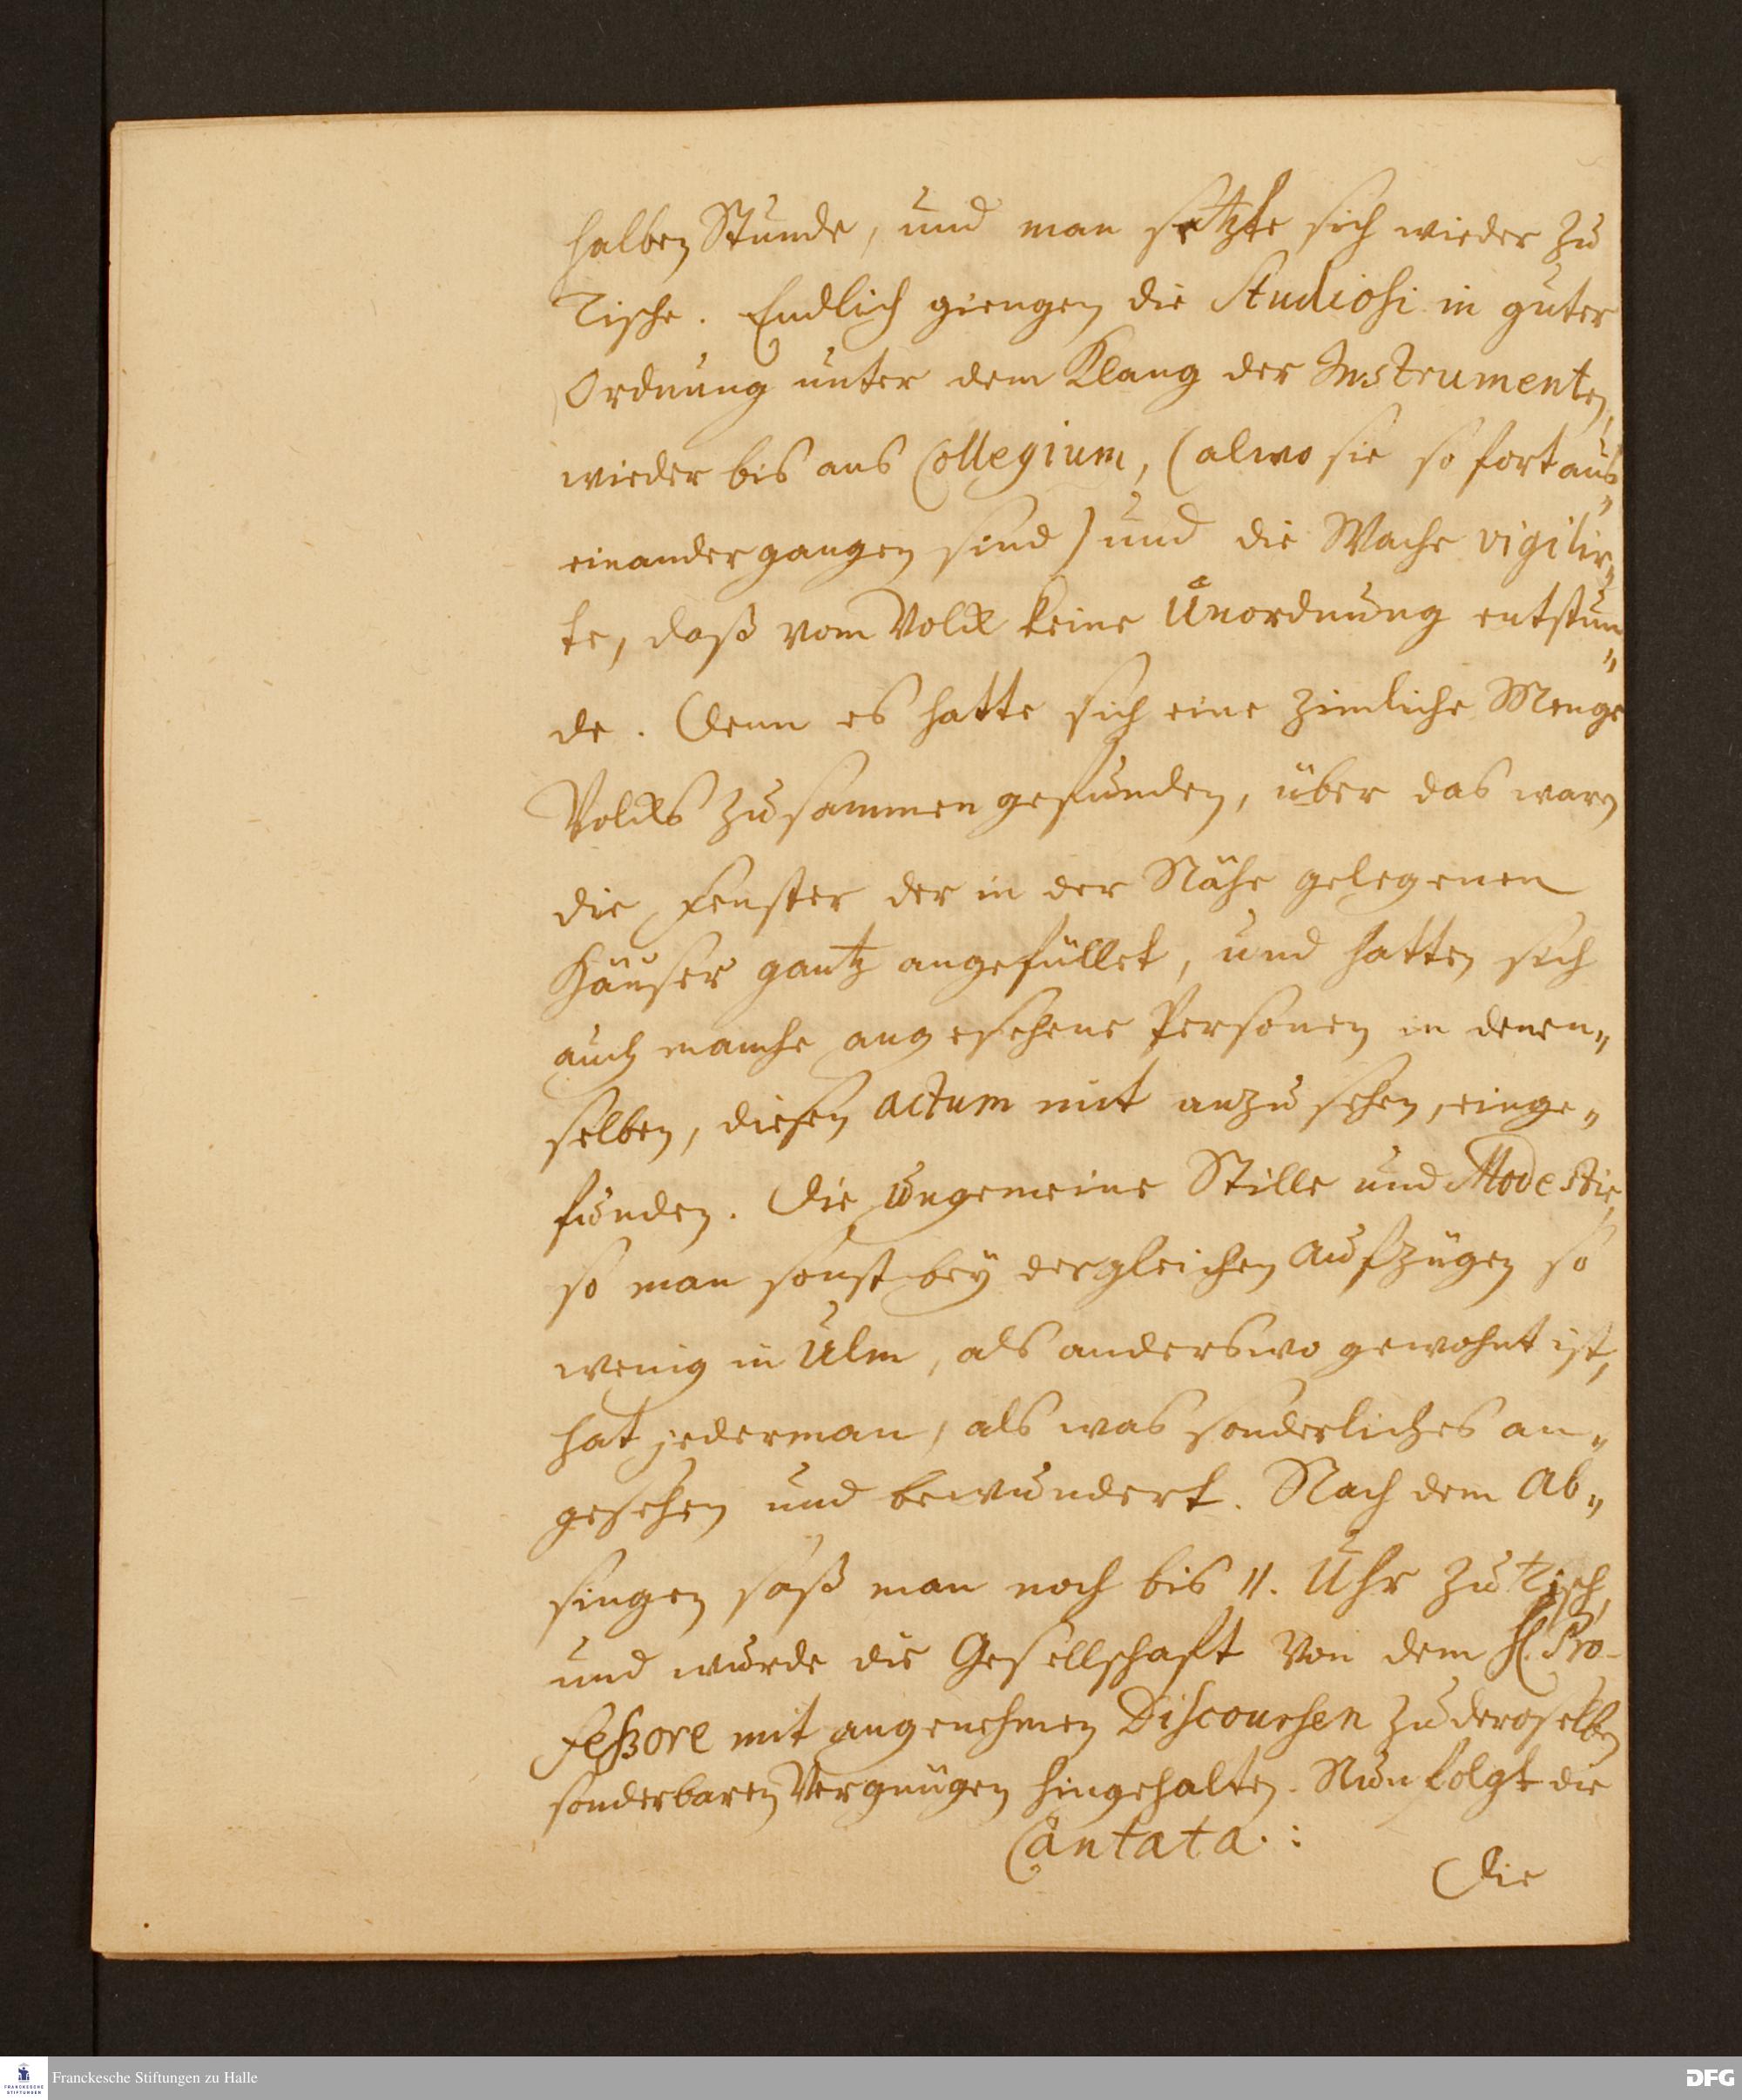 halben Stunde, und man setzte sich wieder zu
Tische. Endlich giengen die Studiosi in guter
Ordnung unter dem Klang der Instrumenten,
wieder bis ans Collegium, (alwo sie so fort aus„
einander gangen sind) und die Wache vigilir„
te, daß vom Volck keine Unordnung entstun„
de. Denn es hatte sich eine zimliche Menge
Volcks zusammen gefunden, über das waren
die Fenster der in der Nähe gelegenen
Häuser gantz angefüllet, und hatten sich
auch manche angesehene Personen in denen„
selben, diesen actum mit anzusehen, einge„
funden. Die ungemeine Stille und Modestie,
so man sonst bey dergleichen Aufzügen so
wenig in Ulm, als anderswo gewohnt ist,
hat jederman, als was sonderliches an„
gesehen und bewundert. Nach dem Ab„
singen saß man noch bis 11. Uhr zu Tisch,
und wurde die Gesellschaft von dem H. Pro-
feßore mit angenehmen Discoursen zu deroselben
sonderbaren Vergnügen hingehalten. Nun folgt die
Cantata.:
Die
FRANCKESCHE STIFTUNGEN
Franckesche Stiftungen zu Halle
DFG